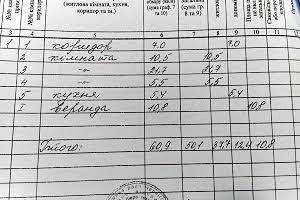 (житлова кімната, кухня,
коридор та ін.)
(сума граф. 7
та 10)
(сума гр. 8
та 9)
3 4 5 6 7 8 9 10
1 1 коридор 7.0 7.0
2 кімната 10,5 10,5
3 -"- 21,7 21,7
4 -"- 5,5 5,5
5 кухня 5,4 5,4
I веранда 10,8 10,8
Итого: 60,9 50,1 37,7 12,4 10,8